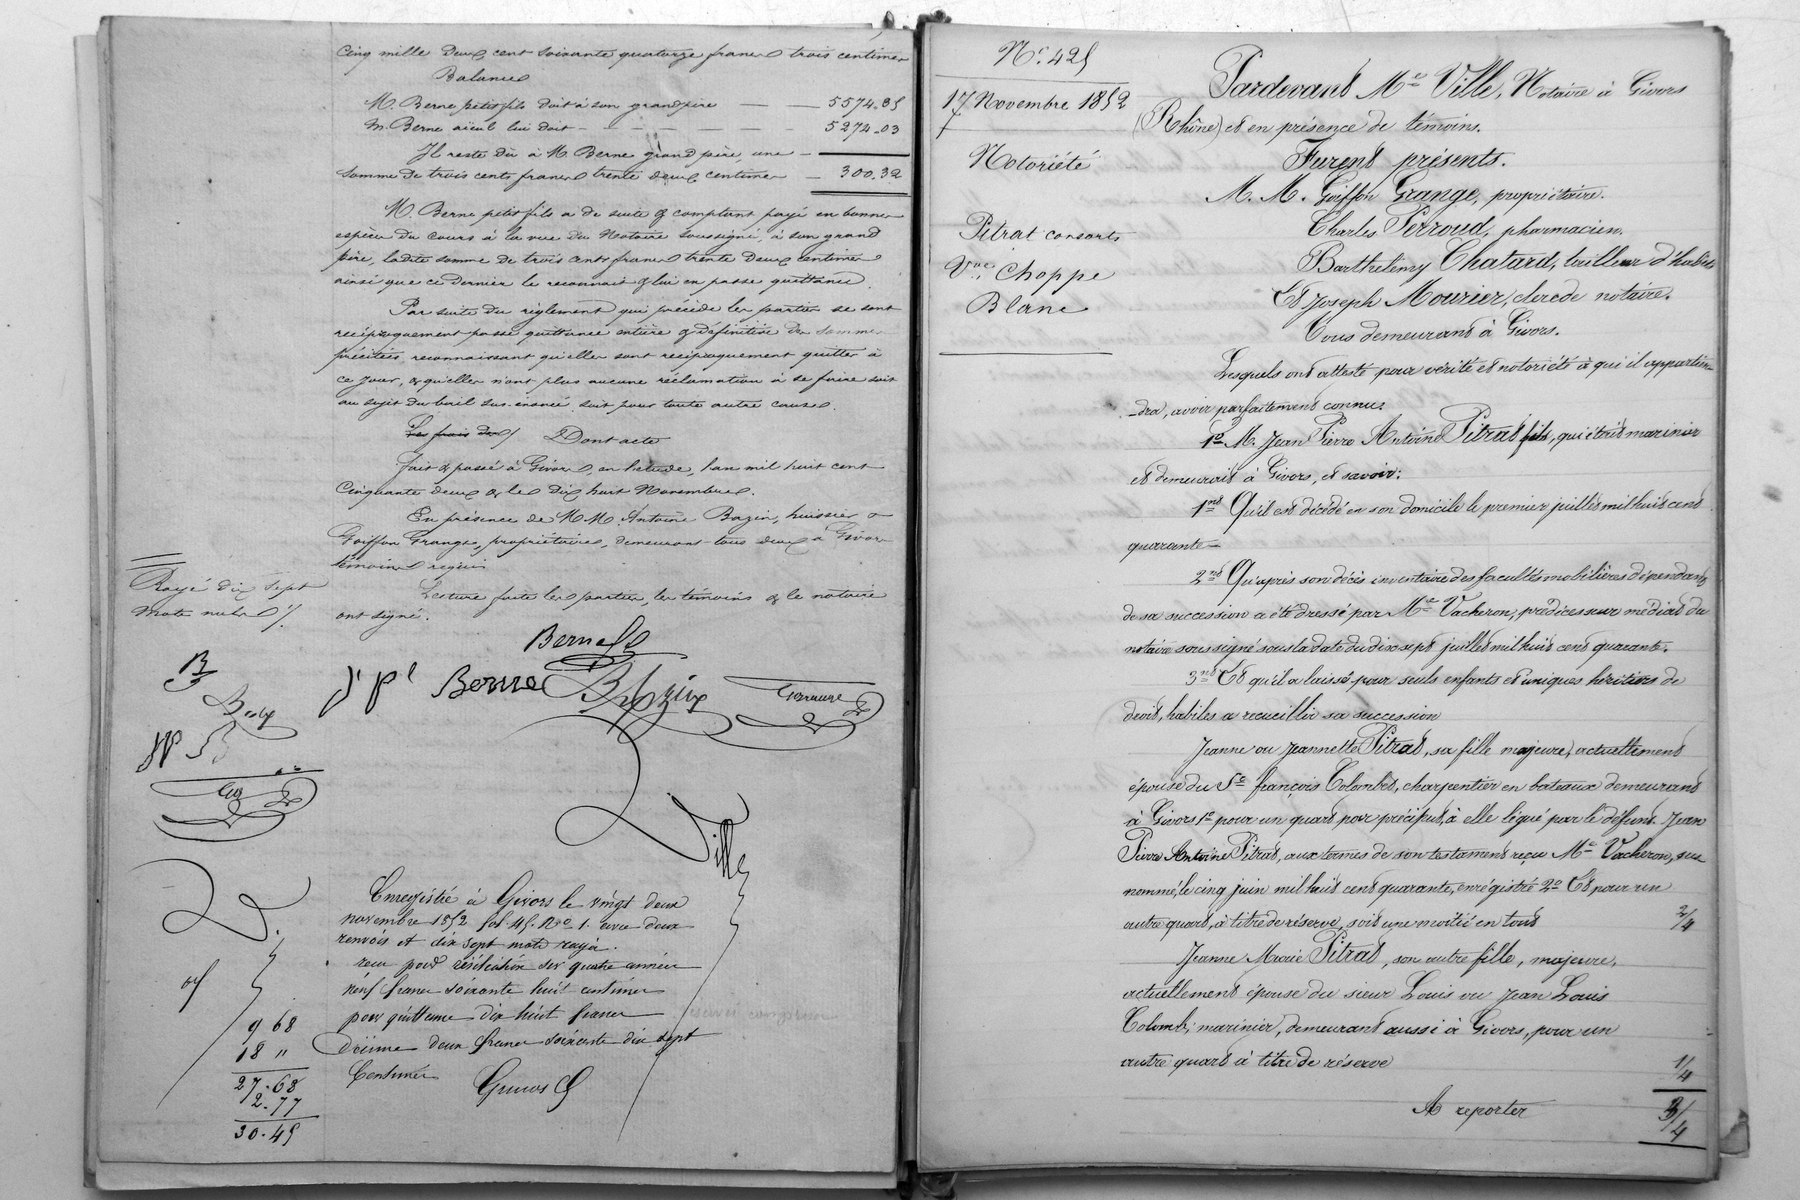 Cinq mille deux cent soixante quatorze francs trois centimes
Balance
M. Berne petit fils doit à son grand père — — 5574.35
M. Berne aïeul lui doit — — — — — 5274.03
Il reste dû à M. Berne grand père, une —
somme de trois cents francs trente deux centimes — 300.32
M. Berne petit fils a de suite & comptant payé en bonnes
espèces du cours à la vue du Notaire soussigné, à son grand
père, ladite somme de trois cents francs trente deux centimes
ainsi que ce dernier le reconnait & lui en passe quittance.
Par suite du règlement qui précède les parties se sont
réciproquement passé quittance entière & définitive des sommes
précitées, reconnaissant qu'elles sont réciproquement quittes à
ce jour, & qu'elles n'ont plus aucune réclamation à se faire soit
au sujet du bail sus-énoncé, soit pour toute autre cause.
Les frais des / Dont acte
Fait & passé à Givors, en l'étude, l'an mil huit cent
cinquante deux & le dix huit Novembre.
En présence de M.M. Antoine Bazin, huissier &
Goiffon Grange, propriétaire, demeurant tous deux à Givors
témoins requis
Lecture faite les parties, les témoins & le notaire
ont signé.
Rayé dix sept
mots nuls /.
Berne
J. P. Berne
Bazin
B
JP B
Ville
Enregistré à Givors le vingt deux
novembre 1852 fol. 45. Ro 1. avec deux
renvois et dix sept mots rayés.
reçu pour résiliation sur quatre années
neuf francs soixante huit centimes
pour quittance dix huit francs
Décime deux francs soixante dix sept
Centimes
9 68
18 "
27.68
2.77
30.45
N° 425
17 Novembre 1852
Notoriété
Pitrat consorts
Vve Choppe
Blanc
Pardevant Me Ville, Notaire à Givors
(Rhône) et en présence de témoins.
Furent présents.
M. M. Goiffon Grange, propriétaire.
Charles Perroud, pharmacien.
Barthélémy Chatard, tailleur d'habits
Et Joseph Mourier, clerc de notaire.
Tous demeurant à Givors.
Lesquels ont attesté pour vérité et notoriété à qui il appartien-
-dra, avoir parfaitement connu:
1° M. Jean Pierre Antoine Pitrat fils, qui était marinier
et demeurait à Givors, et savoir:
1nt Qu'il est décédé en son domicile le premier juillet mil huit cent
quarante
2nt Qu'après son décès inventaire des facultés mobilières dépendant
de sa succession a été dressé par Me Vacheron, prédécesseur médiat du
notaire soussigné sous la date du dix sept juillet mil huit cent quarante.
3nt Et qu'il a laissé pour seuls enfants et uniques héritiers de
droit, habiles a recueillir sa succession
Jeanne ou Jeannette Pitrat, sa fille majeure, actuellement
épouse du Sr françois Colombet, charpentier en bateaux demeurant
à Givors 1° pour un quart par préciput, à elle légué par le défunt Jean
Pierre Antoine Pitrat, aux termes de son testament reçu Me Vacheron, sus
nommé, le cinq juin mil huit cent quarante, enregistré 2° Et pour un
autre quart, à titre de réserve, soit une moitié en tout 2/4
Jeanne Marie Pitrat, son autre fille, majeure,
actuellement épouse du sieur Louis ou Jean Louis
Colomb, marinier, demeurant aussi à Givors, pour un
autre quart à titre de réserve 1/4
A reporter 3/4